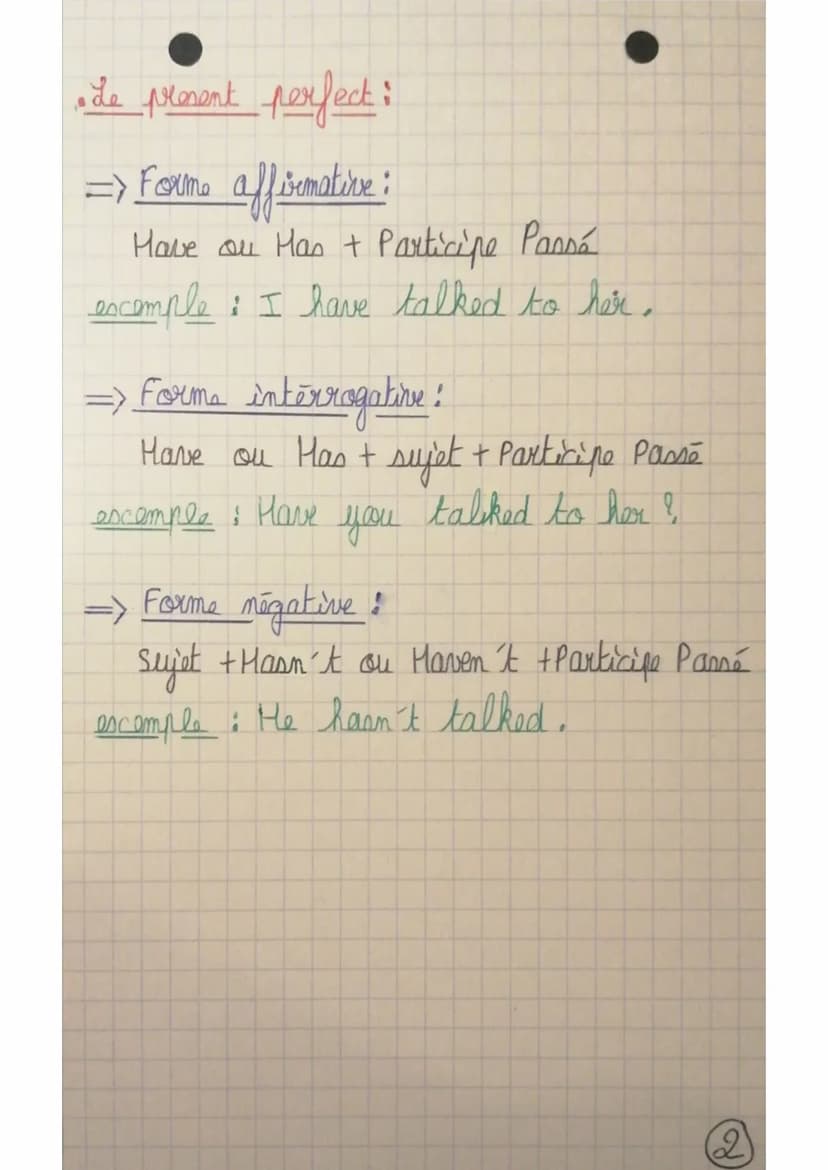 . Le present perfect :
=> Forme affirmative :
Have ou Has + Participe Passé
exemple : I have talked to her.
=> Forme intérrogative :
Have ou Has + sujet + Participe Passé
exemple : Have you talked to her ?
=> Forme négative :
Sujet + Hasn't ou Haven't + Participe Passé
exemple : He hasn't talked.
2